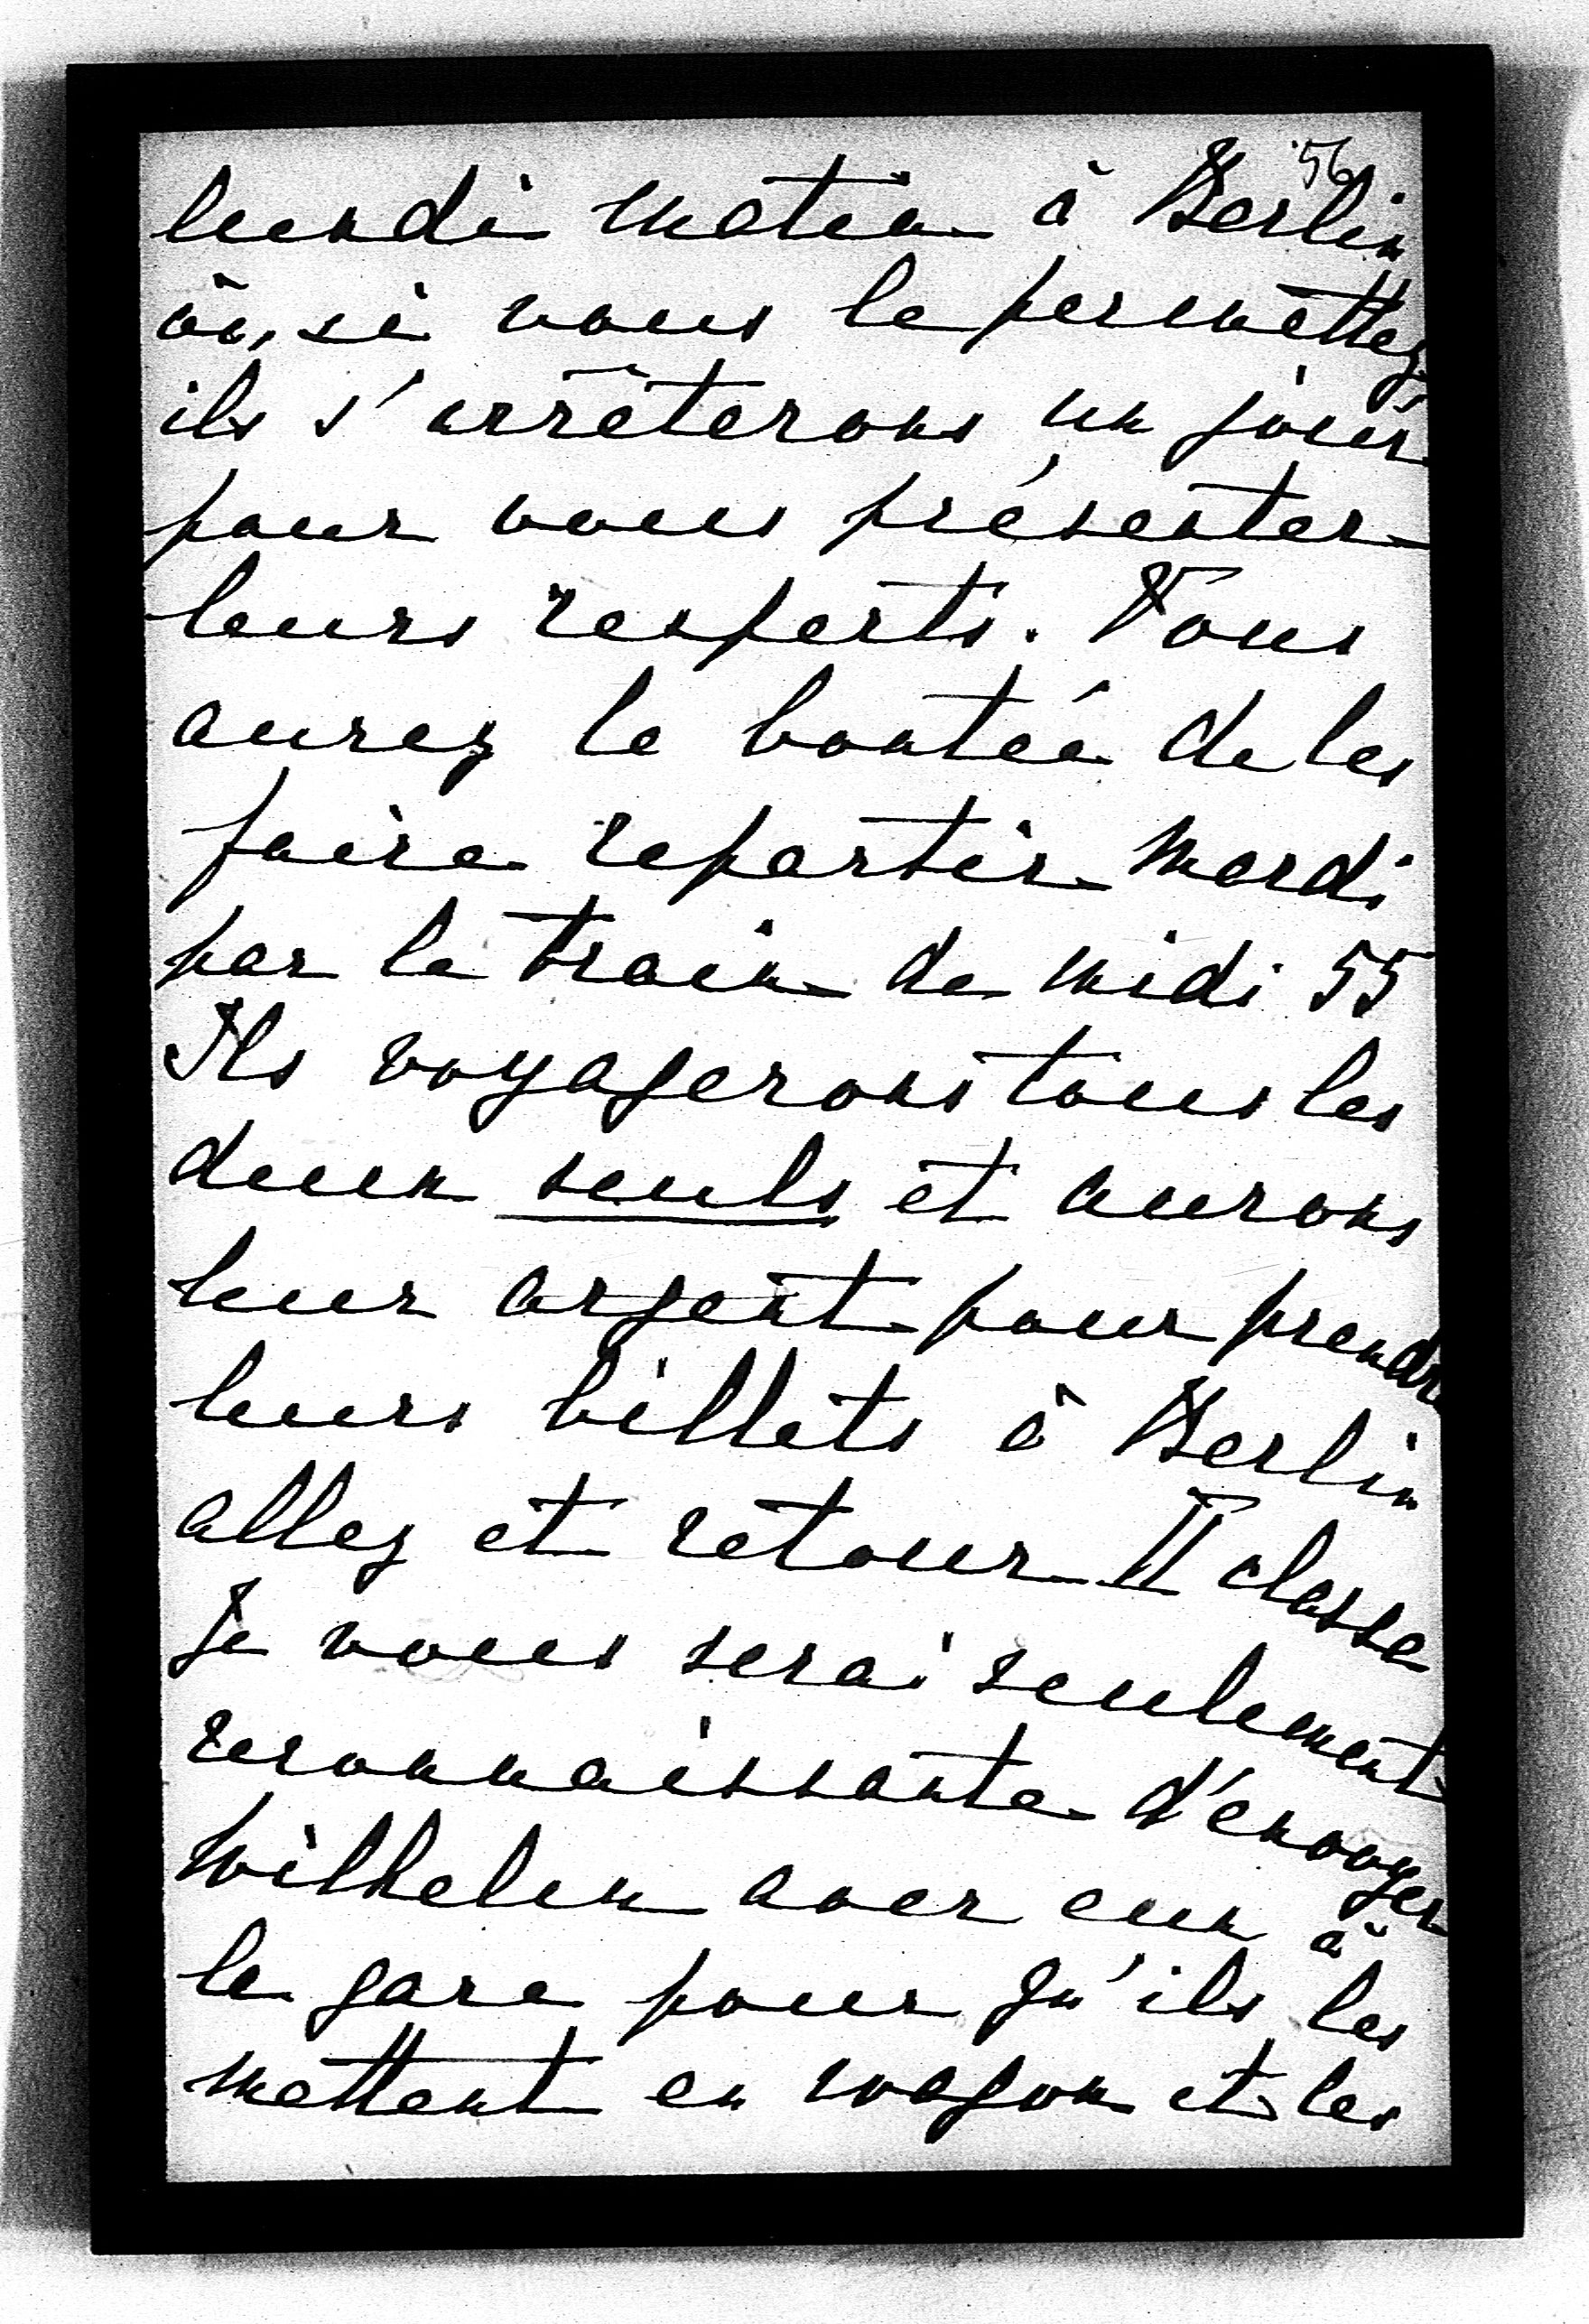 56
lundi matin à Berlin
où, si vous le permettez,
ils s'arrêterons un jour
pour vous présenter
leurs respects. Vous
aurez la bontée de les
faire repartir mardi
par le train de midi 55
Ils voyagerons tous les
deux seuls et aurons
leur argent pour prendre
leurs billets à Berlin
allez et retour II classe
Je vous serai seulement
reconnaissante d'envoyer
Wilhelm avec eux à
la gare pour qu'ils les
mettent en wagon et les